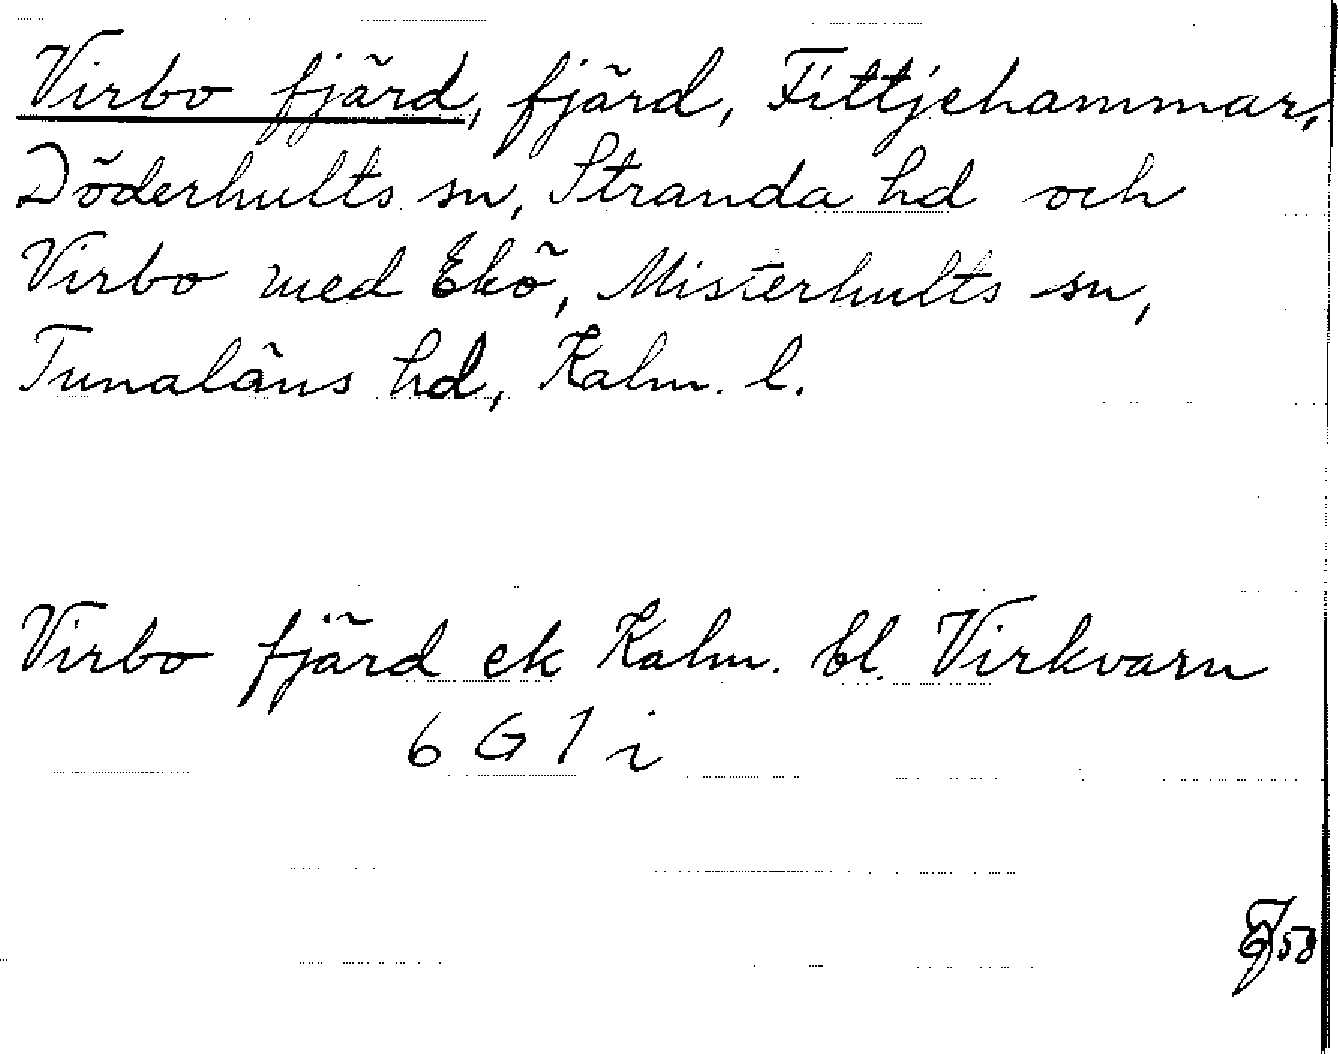 Virbo fjärd, fjärd, Fittjehammar,
Döderhults sn, Stranda hd och
Virbo med Ekö, Misterhults sn,
Tunaläns hd, Kalm. l.
Virbo fjärd ek Kalm. bl. Virkvarn
6 G 1 i